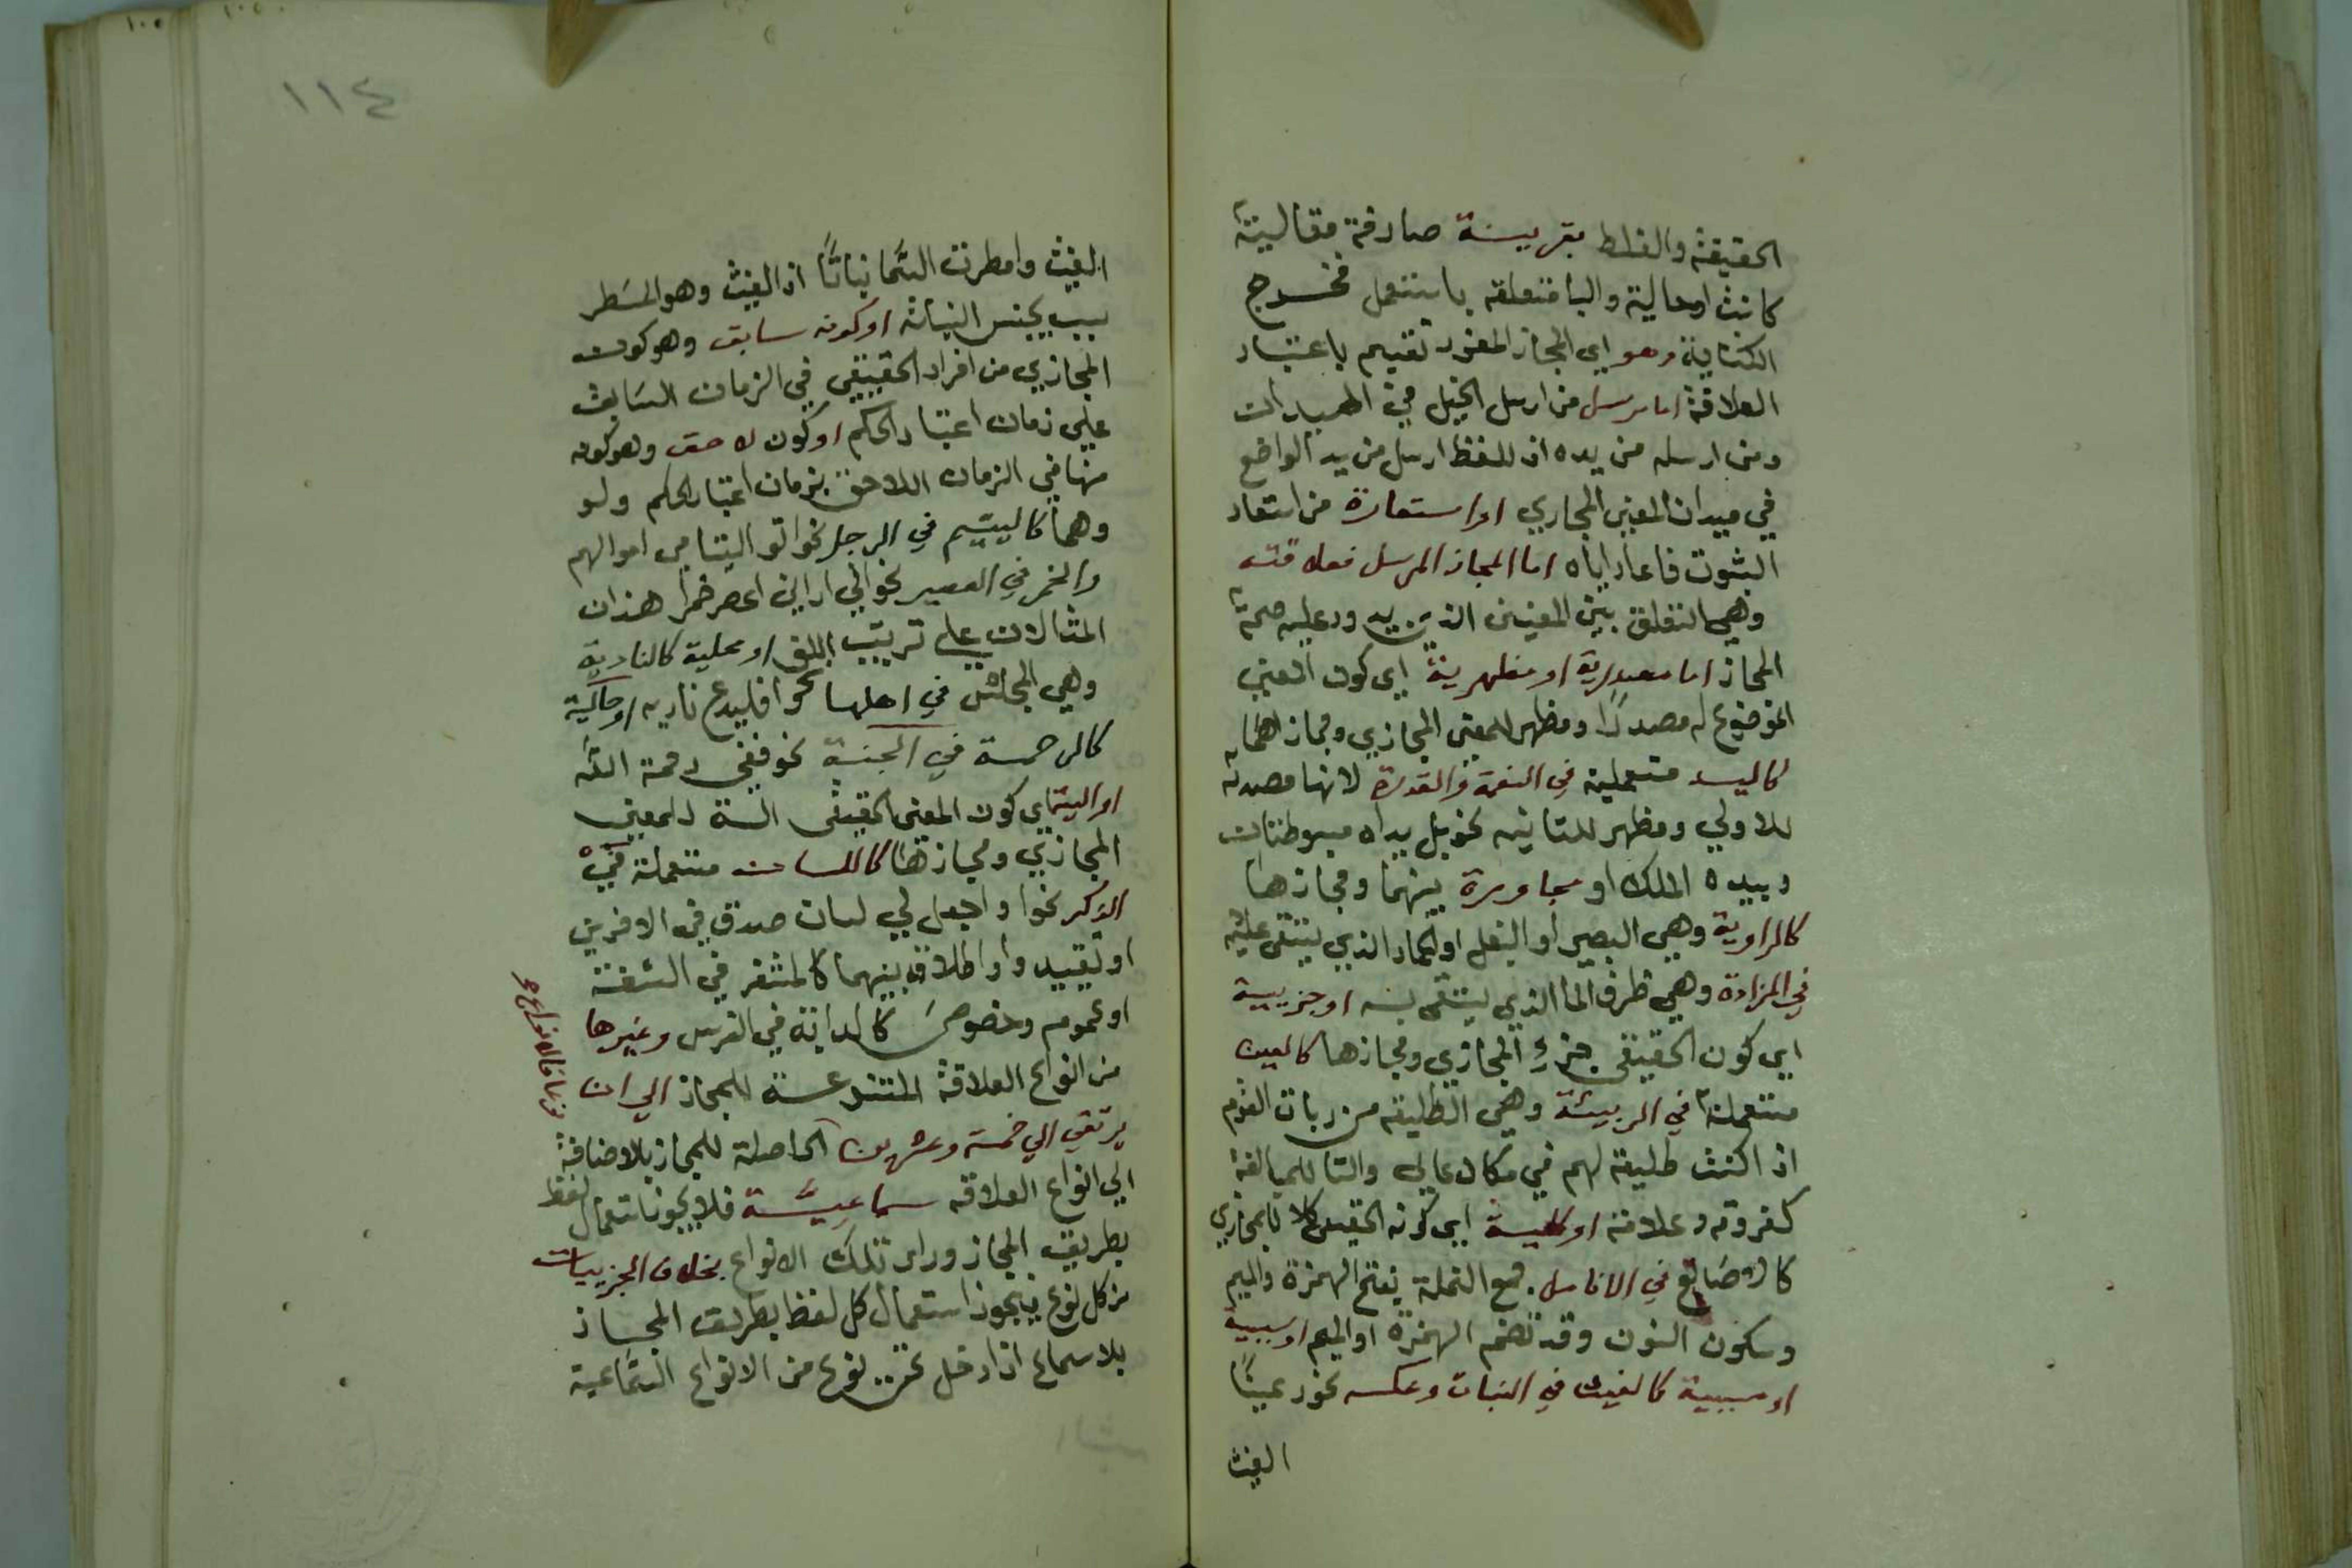 الحقيقة والغلط بقرينة صارفة مقالية
كانت اوحالية والبا متعلقه باستعمل فخرج
الكناية وهو اي المجاز المفرد تقسيم باعتبار
العلاقة اما مرسل من ارسل الخيل في الميدان
ومن ارسله من يده اذ اللفظ ارسل من يد الواضع
في ميدان المعني المجازي او استعارة من استعار
الثوب فاعار اياه اما المجاز المرسل فعلاقته
وهي التعلق بين المعنيين الذي يدور عليه صحة
المجاز اما مصدرية او مظهرية اي كون المعني
الموضوع له مصدرًا ومظهر للمعني المجازي ومجازهما
كاليد مستعملة في النعمة والقدرة لانها مصدر
للاولي ومظهر للثانيه نحو بل يداه مبسوطتان
وبيده الملك او مجاورة بينهما ومجازها
كالراوية وهي البعير او البغل او الحمار الذي يستقى عليه
في المزادة وهي ظرف الما الذي يستقى به او جزيية
اي كون الحقيقي جزء المجازي ومجازها كالعين
مستعملة في الربيئة وهي الطليعة من ربات القوم
اذ اكنت طليعة لهم في مكان عالي والتا للمبالغة
كفروقه وعلامة او كلية اي كونه الحقيقي كلا للمجازي
كالاصابع في الانامل جمع انملة بفتح الهمزة والميم
وسكون النون وقد تضم الهمزة او الميم او سببية
او مسببية كالغيث في النبات وعكسه نحو رعينًا
الغيث
١١٤
الغيث وامطرت السَّما نباتًا اذ الغيث وهو المسَطر
سبب لجنس النبات او كونه سابق وهو كون
المجازي من افراد الحقيقي في الزمان السَابق
علي زمان اعتبار الحكم او كون لاحق وهو كونه
منها في الزمان اللاحق بزمان اعتبار الحكم ولو
وهما كاليتيم في الرجل نحو اتو اليتامي اموالهم
والخمر في العصير نحو اني اراني اعصر خمرا هذان
المثالان علي ترتيب اللف او محلية كالنادية
وهي المجلس في اهلها نحو فليدع ناديه او حالية
كالرحمة في الجنة نحو ففي رحمة الله
او الية اي كون المعني الحقيقي الة للمعني
المجازي ومجازها كاللسان مستعملة في
الذكر نحو واجعل لي لسان صدق في الاخرين
او تقييد واو اطلاق بينهما كالمشفر في الشفة
او عموم وخصوص كالدابة في الفرس وغيرها
من انواع العلاقة المتنوعة للمجاز الي ان
يرتقي الي خمسة وعشرين الحاصلة للمجاز بالاضافة
الي انواع العلاقه سماعيَّة فلا يجوز استعمال لفظ
بطريق المجاز وراء تلك الانواع بخلاف الجزييات
من كل نوع فيجوز استعمال كل لفظ بطريق المجاز
بلا سماع اذا دخل تحت نوع من الانواع السَّماعية